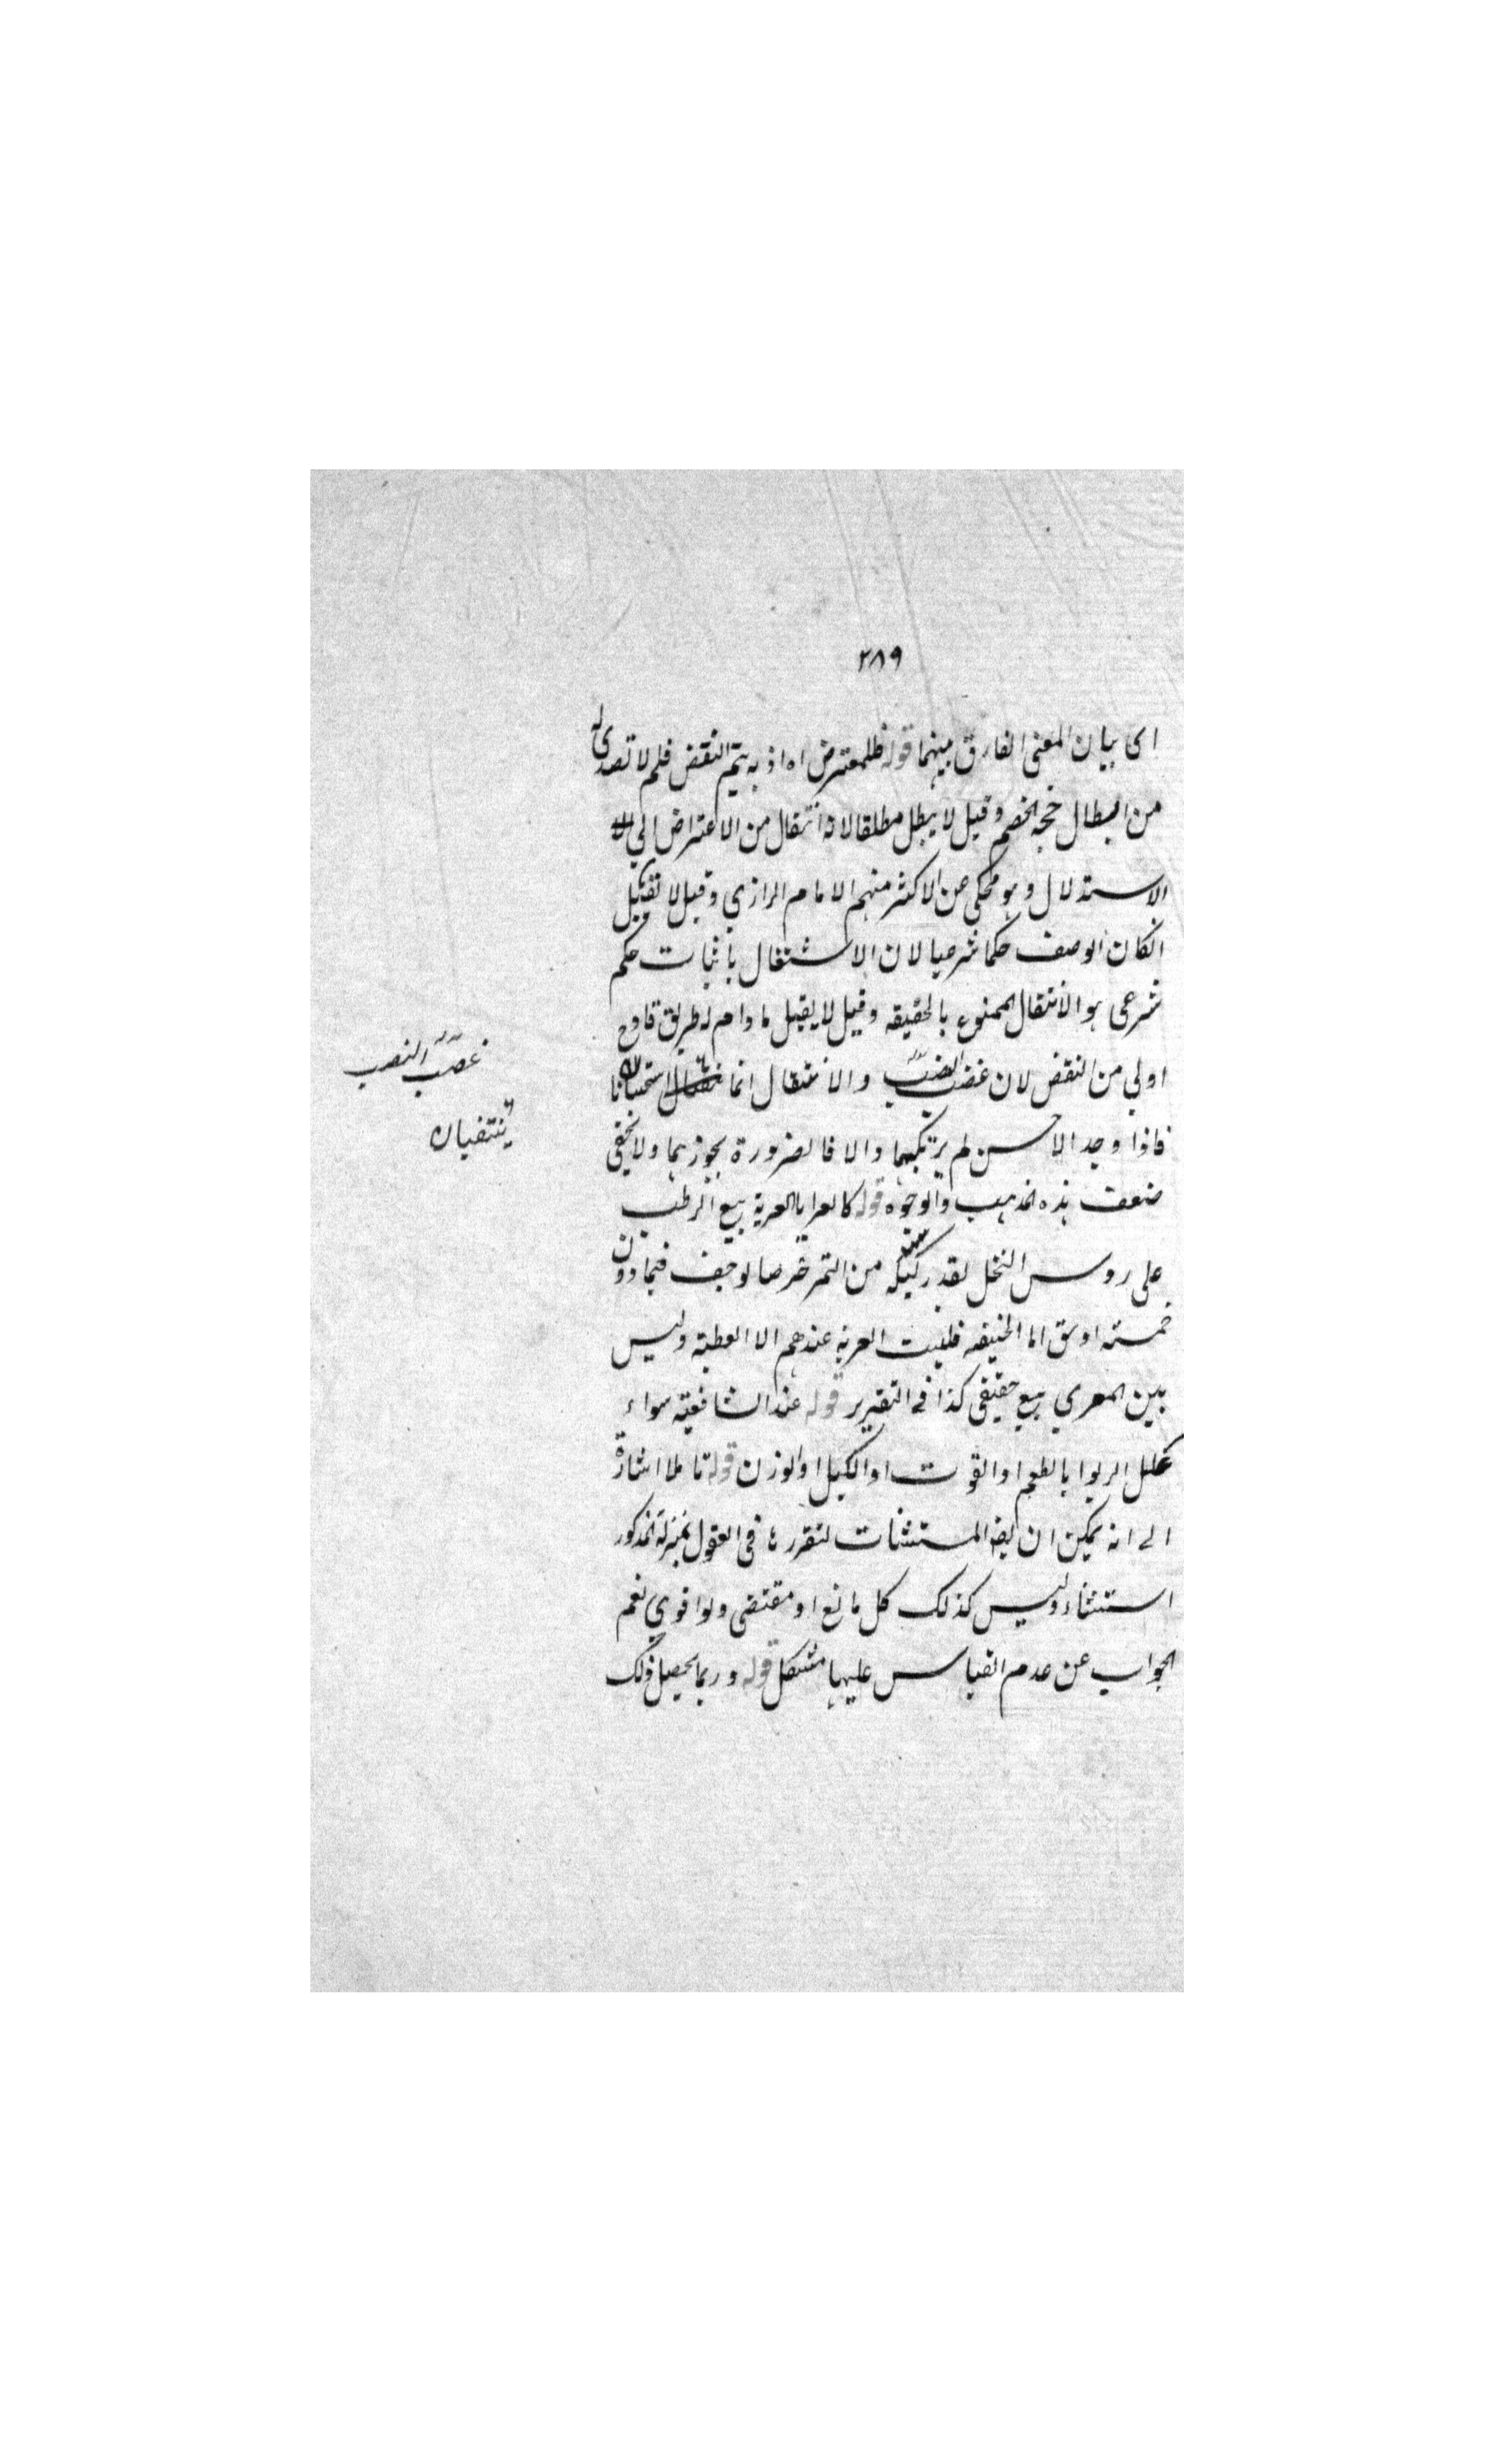 ٢٨٩
اى بيان المعنى الفارق بينهما قوله فللمعترض اه اذ به يتم النقض فلم لا تصدى له
من ابطال حجة الخصم وقيل لا يبطل مطلقا لانه انتقال من الاعتراض الي
الاستدلال وهو محكى عن الاكثر منهم الامام الرازي وقيل لا تقبل
انكان الوصف حكما شرعيا لان الاشتغال باثبات حكم
شرعى هو الانتقال الممنوع بالحقيقه وقيل لا يقبل مادام له طريق قادح
اولي من النقض لان غصب والانتقال انما استحسانا
غصب النصب
ينتفيان
فاذا وجد الاحسن لم يرتكبهما والا فالضرورة يجوزهما ولا يخفى
ضعف هذه المذهب والوجوه قوله كالعرايا العرية بيع الرطب
على روس النخل بقدر كيله من التمر خرصا لوجف فيما دون
خمسة اوسق اما الحنيفه فليست العرية عندهم الا العطية وليس
بين المعري بيع حقيقى كذا فى التقرير قوله عند الشافعية سواء
علل الربوا بالطعم او القوت او الكيل او الوزن قوله تاملا اشارة
الى انه يمكن ان المستثنات لتقررها فى العقول بمنزلة المذكور
استثناء وليس كذلك كل مانع او مقتضى ولو اقوي نعم
الجواب عن عدم القياس عليها مشكل قوله وربما يحصل ذلك